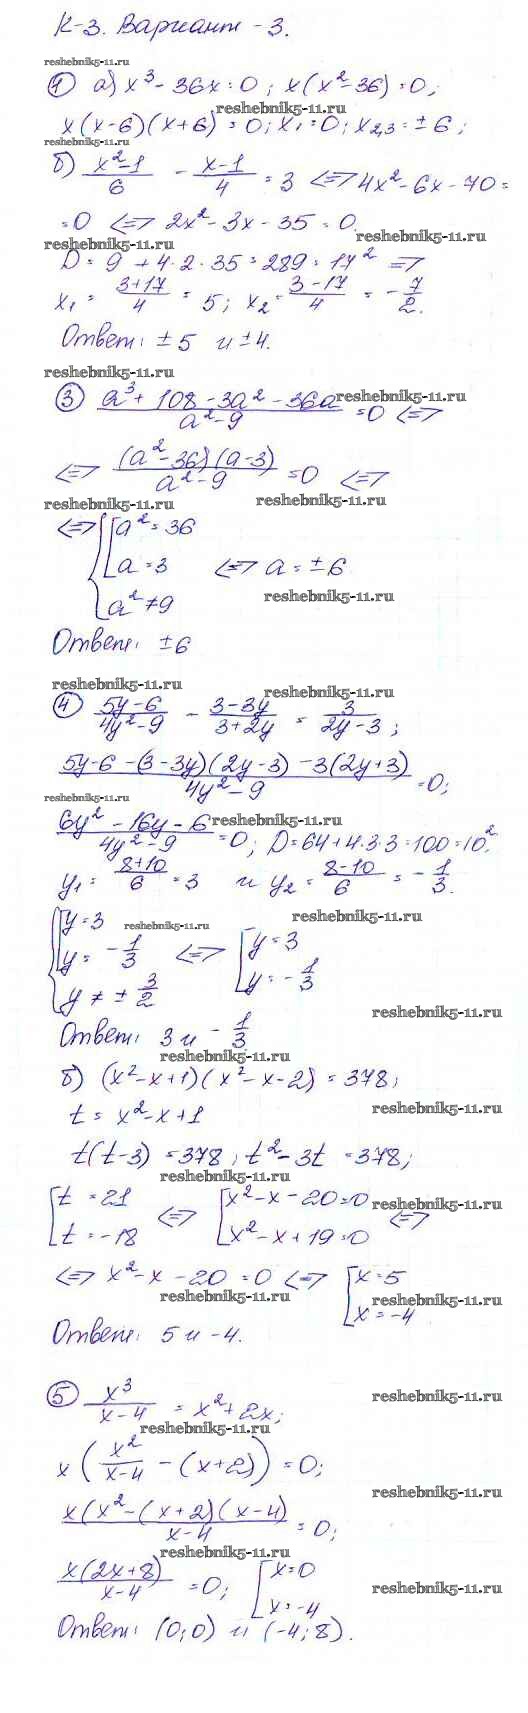 К-3. Вариант-3.
reshebnik5-11.ru
① а) x³ - 36x = 0; x(x² - 36) = 0;
reshebnik5-11.ru
x(x-6)(x+6) = 0; x₁ = 0; x₂,₃ = ±6;
reshebnik5-11.ru
б) (x²-1)/6 - (x-1)/4 = 3 <=> 4x² - 6x - 70 =
= 0 <=> 2x² - 3x - 35 = 0.
reshebnik5-11.ru reshebnik5-11.ru
D = 9 + 4·2·35 = 289 = 17² =>
x₁ = (3+17)/4 = 5; x₂ = (3-17)/4 = -7/2.
Ответ: ±5 и ±4.
reshebnik5-11.ru
③ (a³ + 108 - 3a² - 36a)/(a² - 9) = 0 <=>
reshebnik5-11.ru
<=> (a² - 36)(a-3)/(a² - 9) = 0 <=>
reshebnik5-11.ru reshebnik5-11.ru
<=> { [ a² = 36
a = 3 <=> a = ±6
reshebnik5-11.ru
a² ≠ 9
Ответ: ±6
reshebnik5-11.ru reshebnik5-11.ru
④ (5y-6)/(4y²-9) - (3-3y)/(3+2y) = 3/(2y-3);
(5y-6-(3-3y)(2y-3)-3(2y+3))/(4y²-9) = 0;
reshebnik5-11.ru
reshebnik5-11.ru
(6y² - 16y - 6)/(4y² - 9) = 0; D = 64+4·3·3 = 100 = 10².
y₁ = (8+10)/6 = 3 и y₂ = (8-10)/6 = -1/3.
reshebnik5-11.ru reshebnik5-11.ru
{ [ y = 3
y = -1/3 <=> [ y = 3
y ≠ ±3/2 y = -1/3
reshebnik5-11.ru
Ответ: 3 и -1/3.
reshebnik5-11.ru
б) (x²-x+1)(x²-x-2) = 378;
t = x²-x+1
reshebnik5-11.ru
t(t-3) = 378; t²-3t = 378;
reshebnik5-11.ru
[ t = 21 <=> [ x²-x-20=0
reshebnik5-11.ru
t = -18 x²-x+19=0 <=>
<=> x²-x-20 = 0 <=> [ x = 5
reshebnik5-11.ru reshebnik5-11.ru
x = -4
Ответ: 5 и -4.
⑤ x³/(x-4) = x²+2x;
reshebnik5-11.ru
reshebnik5-11.ru
x(x²/(x-4) - (x+2)) = 0;
reshebnik5-11.ru
x(x²-(x+2)(x-4)/(x-4) = 0;
reshebnik5-11.ru
x(2x+8)/(x-4) = 0; [ x=0
reshebnik5-11.ru
x=-4
Ответ: (0;0) и (-4;8).